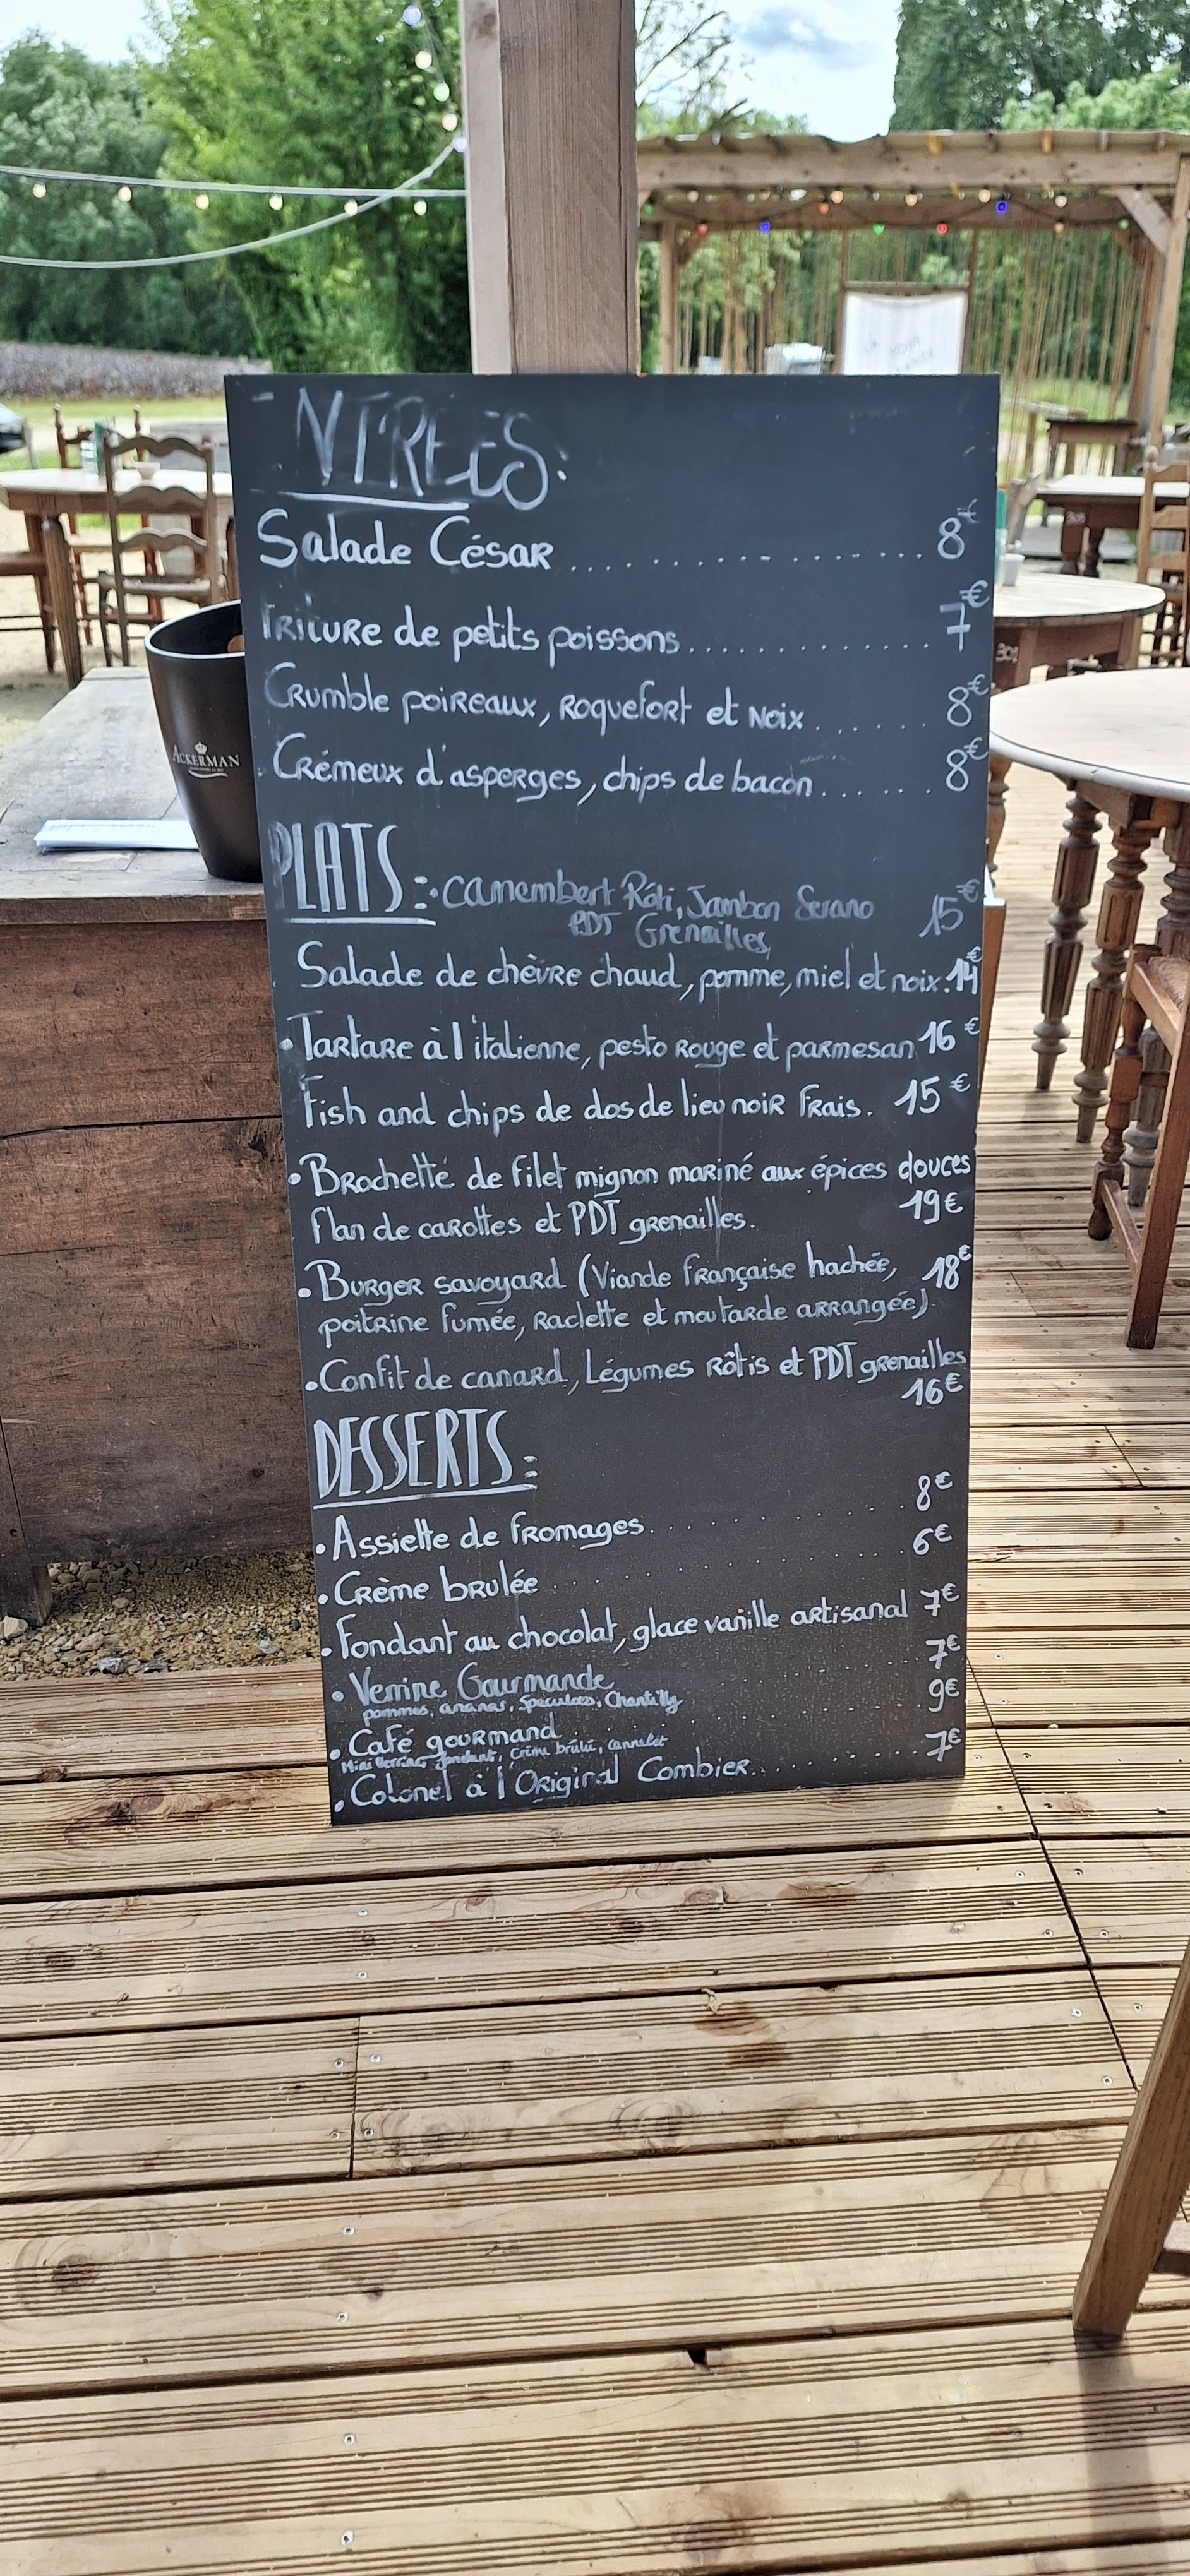 NTREES:
Salade César .................... 8€
Friture de petits poissons.............. 7€
Crumble poireaux, Roquefort et Noix....... 8€
. Crémeux d'asperges, chips de bacon....... 8€
PLATS: . camembert Rôti, Jambon Serano 15€
PDT Grenailles
Salade de chèvre chaud, pomme, miel et noix. 14€
. Tartare à l'italienne, pesto Rouge et parmesan 16€
Fish and chips de dos de lieu noir Frais. 15€
. Brochette de filet mignon mariné aux épices douces
flan de carottes et PDT grenailles. 19€
. Burger savoyard (Viande française hachée, 18€
poitrine fumée, Raclette et moutarde arrangée).
. Confit de canard, Légumes Rôtis et PDT grenailles
16€
DESSERTS:
. Assiette de fromages............ 8€
. Crème brulée............ 6€
. Fondant au chocolat, glace vanille artisanal 7€
. Verrine Gourmande ............ 7€
pommes, ananas, Speculoos, Chantilly
. Café gourmand ............ 9€
Mini Verrine, fondant, Crème brulé, cannelet
. Colonel à l'Original Combier............ 7€
ACKERMAN
302